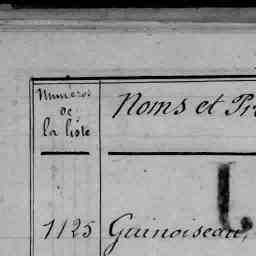 Numéros
de
la liste
Noms et Pr
1125 Guinoiseau,